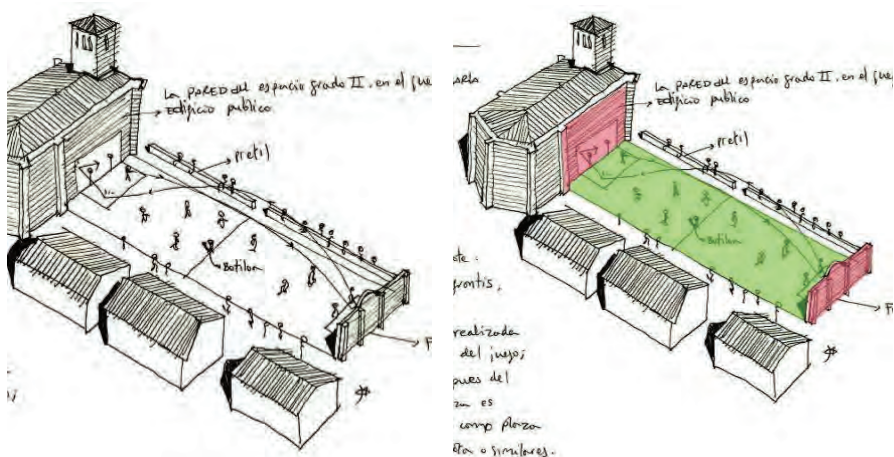 La PARED del espacio grado II. en el
Edificio publico
Pretil
Botillon
F
La PARED del espacio grado II. en el
Edificio publico
Pretil
Botillon
F
frontis,
realizada
del juego;
es
como plaza
o similares.